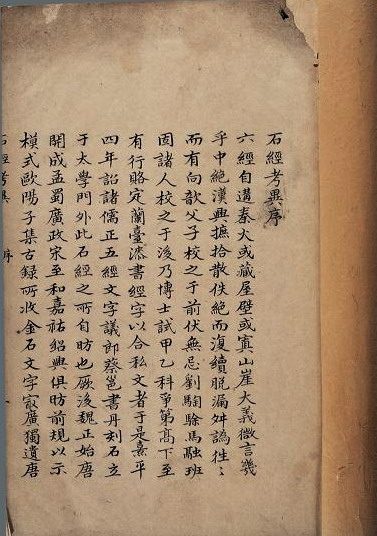 石經考異序
六經自遘秦火或藏屋壁或寘山崖大義微言㡬
乎中絶漢興摭拾散佚絶而復續脱漏舛譌徃〻
而有向歆父子校之于前伏無忌劉騊駼馬融班
固諸人校之于後乃博士試甲乙科爭第髙下至
有行賂定蘭臺漆書經字以合私文者于是熹平
四年詔諸儒正五經文字議郎蔡邕書丹刻石立
于太學門外此石經之所自昉也厥後魏正始唐
開成孟蜀廣政宋至和嘉祐紹興俱昉前規以示
模式歐陽子集古録所收金石文字㝡廣獨遺唐
石經考異 序